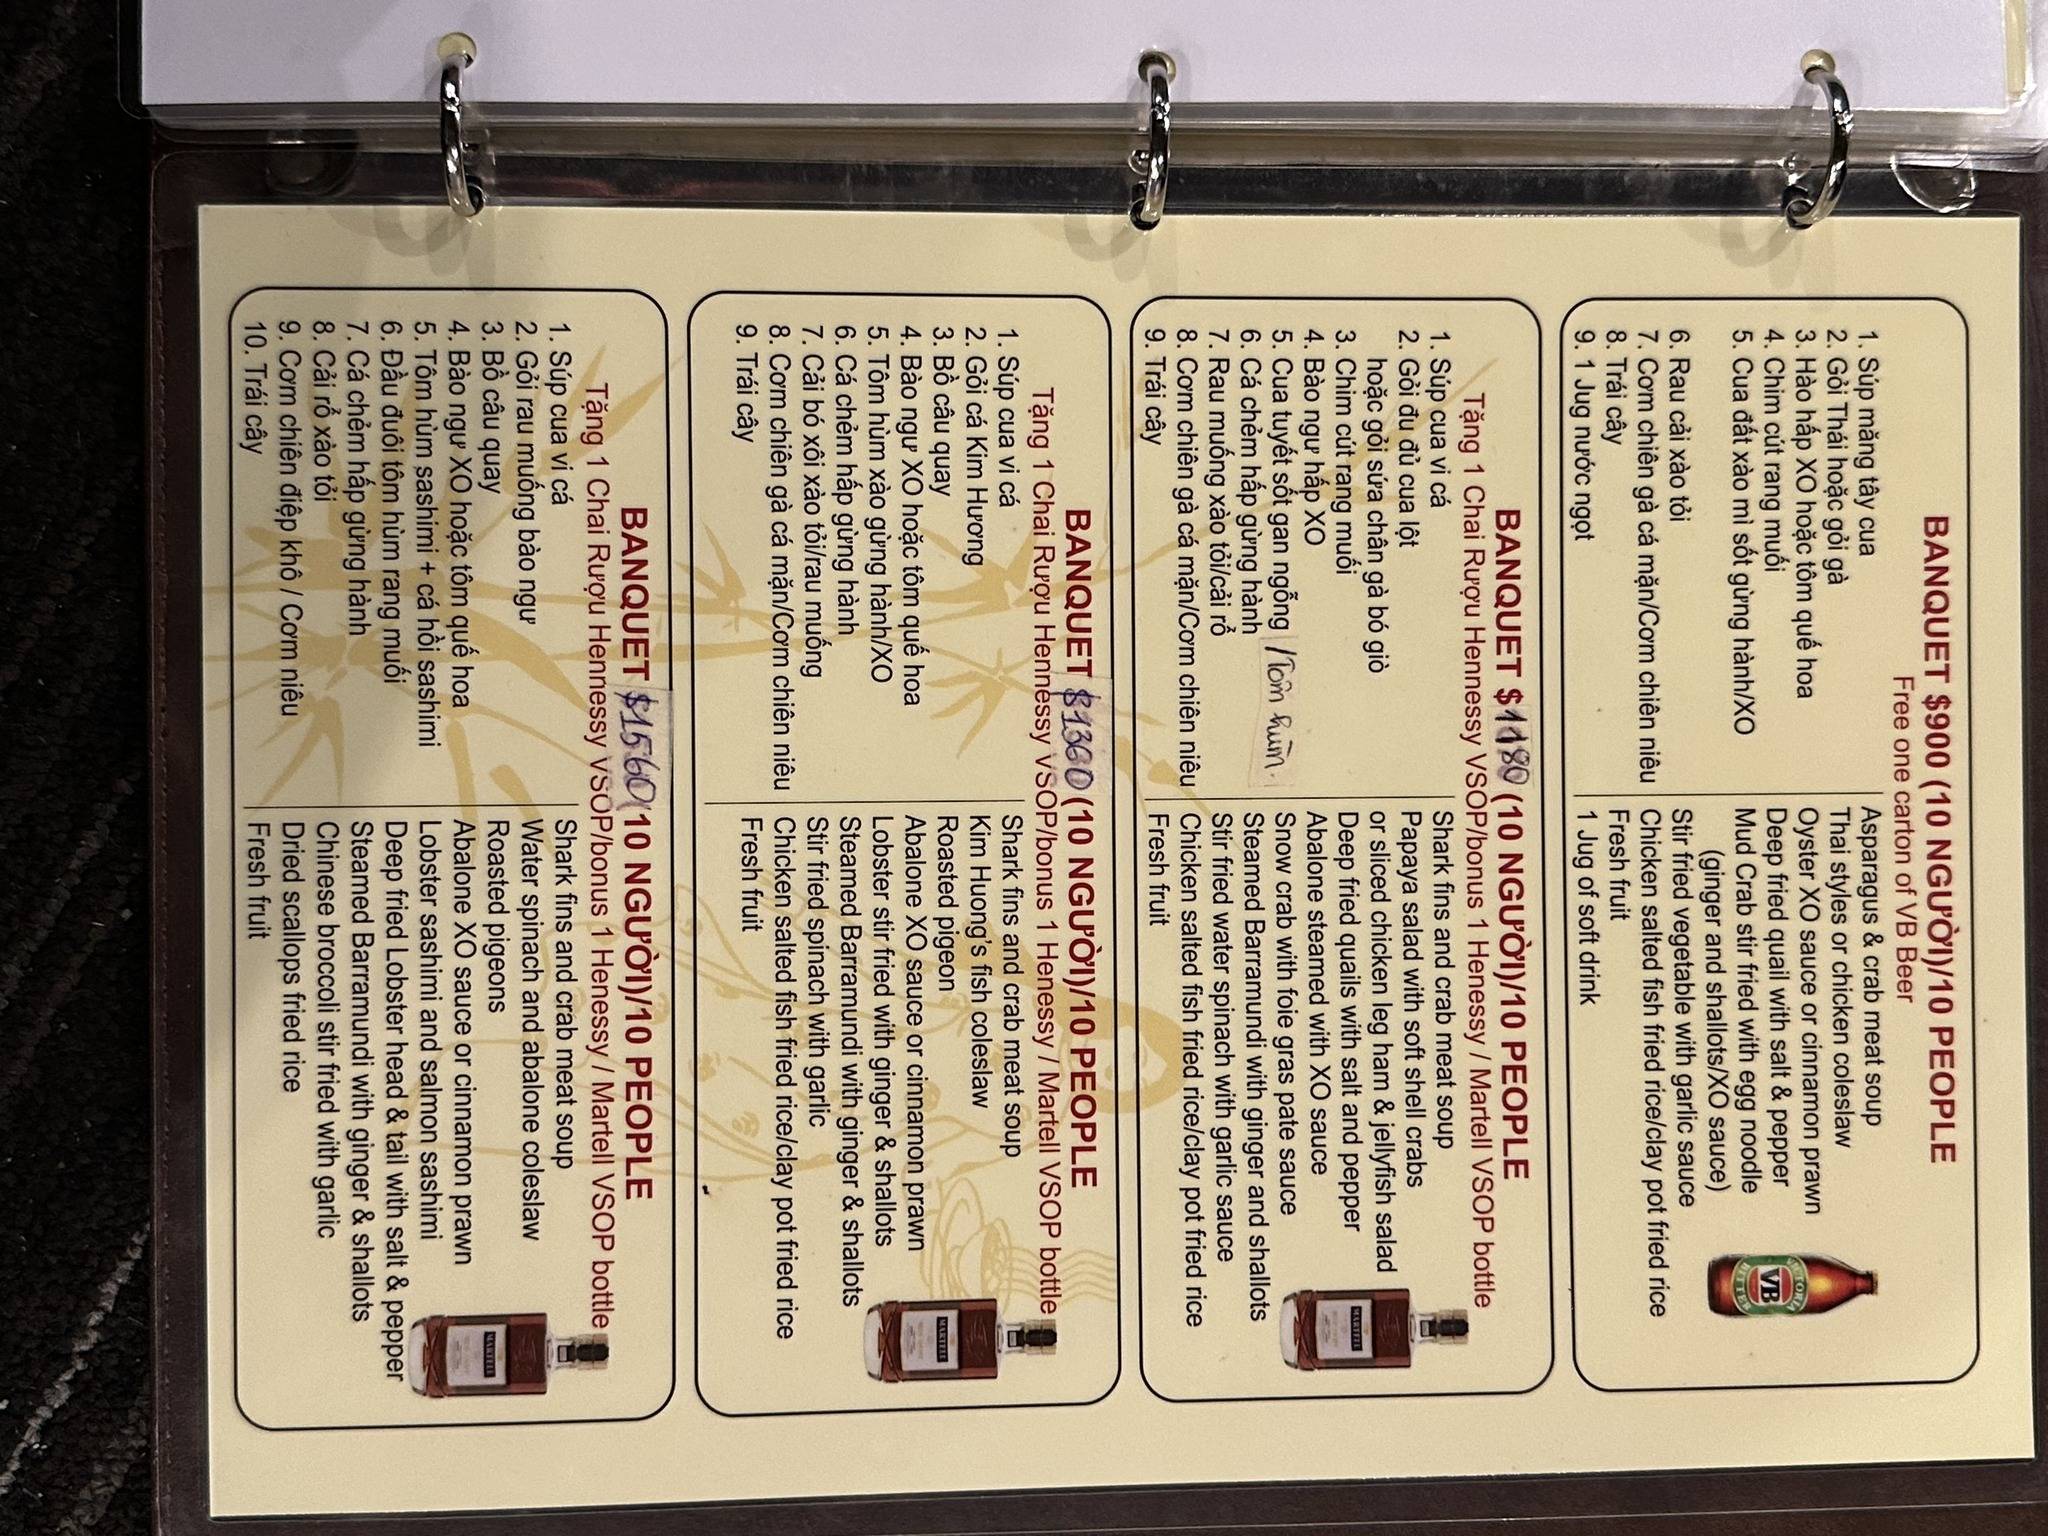 BANQUET $900 (10 NGƯỜI)/10 PEOPLE
Free one carton of VB Beer
1. Súp măng tây cua
2. Gỏi Thái hoặc gỏi gà
3. Hào hấp XO hoặc tôm quế hoa
4. Chim cút rang muối
5. Cua đất xào mì sốt gừng hành/XO
6. Rau cải xào tỏi
7. Cơm chiên gà cá mặn/Cơm chiên niêu
8. Trái cây
9. 1 Jug nước ngọt
Asparagus & crab meat soup
Thai styles or chicken coleslaw
Oyster XO sauce or cinnamon prawn
Deep fried quail with salt & pepper
Mud Crab stir fried with egg noodle
(ginger and shallots/XO sauce)
Stir fried vegetable with garlic sauce
Chicken salted fish fried rice/clay pot fried rice
Fresh fruit
1 Jug of soft drink
VICTORIA
VB
BITTER
BANQUET $1180 (10 NGƯỜI)/10 PEOPLE
Tặng 1 Chai Rượu Hennessy VSOP/bonus 1 Henessy / Martell VSOP bottle
1. Súp cua vi cá
2. Gỏi đu đủ cua lột
hoặc gỏi sứa chân gà bó giò
3. Chim cút rang muối
4. Bào ngư hấp XO
5. Cua tuyết sốt gan ngỗng /Tôm hùm.
6. Cá chẻm hấp gừng hành
7. Rau muống xào tỏi/cải rổ
8. Cơm chiên gà cá mặn/Cơm chiên niêu
9. Trái cây
Shark fins and crab meat soup
Papaya salad with soft shell crabs
or sliced chicken leg ham & jellyfish salad
Deep fried quails with salt and pepper
Abalone steamed with XO sauce
Snow crab with foie gras pate sauce
Steamed Barramundi with ginger and shallots
Stir fried water spinach with garlic sauce
Chicken salted fish fried rice/clay pot fried rice
Fresh fruit
MARTELL
BANQUET $1360 (10 NGƯỜI)/10 PEOPLE
Tặng 1 Chai Rượu Hennessy VSOP/bonus 1 Henessy / Martell VSOP bottle
1. Súp cua vi cá
2. Gỏi cá Kim Hương
3. Bồ câu quay
4. Bào ngư XO hoặc tôm quế hoa
5. Tôm hùm xào gừng hành/XO
6. Cá chẻm hấp gừng hành
7. Cải bó xôi xào tỏi/rau muống
8. Cơm chiên gà cá mặn/Cơm chiên niêu
9. Trái cây
Shark fins and crab meat soup
Kim Huong's fish coleslaw
Roasted pigeon
Abalone XO sauce or cinnamon prawn
Lobster stir fried with ginger & shallots
Steamed Barramundi with ginger & shallots
Stir fried spinach with garlic
Chicken salted fish fried rice/clay pot fried rice
Fresh fruit
MARTELL
BANQUET $1560 (10 NGƯỜI)/10 PEOPLE
Tặng 1 Chai Rượu Hennessy VSOP/bonus 1 Henessy / Martell VSOP bottle
1. Súp cua vi cá
2. Gỏi rau muống bào ngư
3. Bồ câu quay
4. Bào ngư XO hoặc tôm quế hoa
5. Tôm hùm sashimi + cá hồi sashimi
6. Đầu đuôi tôm hùm rang muối
7. Cá chẻm hấp gừng hành
8. Cải rổ xào tỏi
9. Cơm chiên điệp khô / Cơm niêu
10. Trái cây
Shark fins and crab meat soup
Water spinach and abalone coleslaw
Roasted pigeons
Abalone XO sauce or cinnamon prawn
Lobster sashimi and salmon sashimi
Deep fried Lobster head & tail with salt & pepper
Steamed Barramundi with ginger & shallots
Chinese broccoli stir fried with garlic
Dried scallops fried rice
Fresh fruit
MARTELL